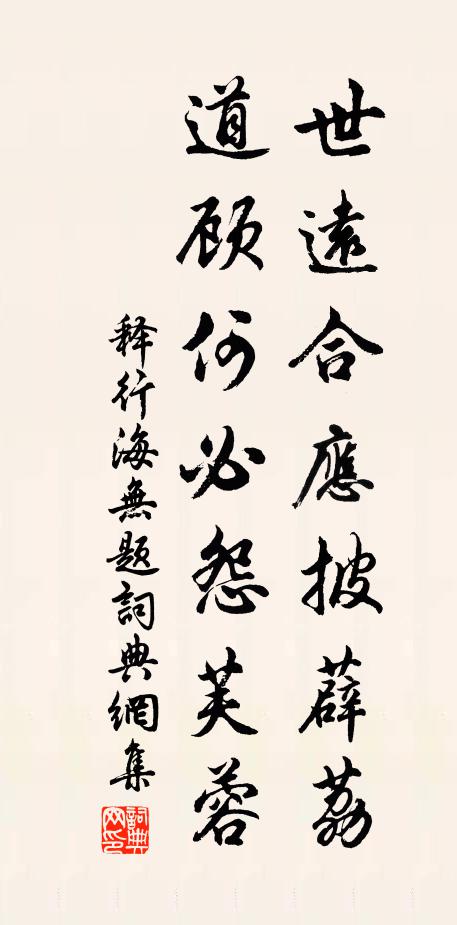 世遠合應披薜荔
道顾何必怨芙蓉
释行海無题詞典網集
詞典網印